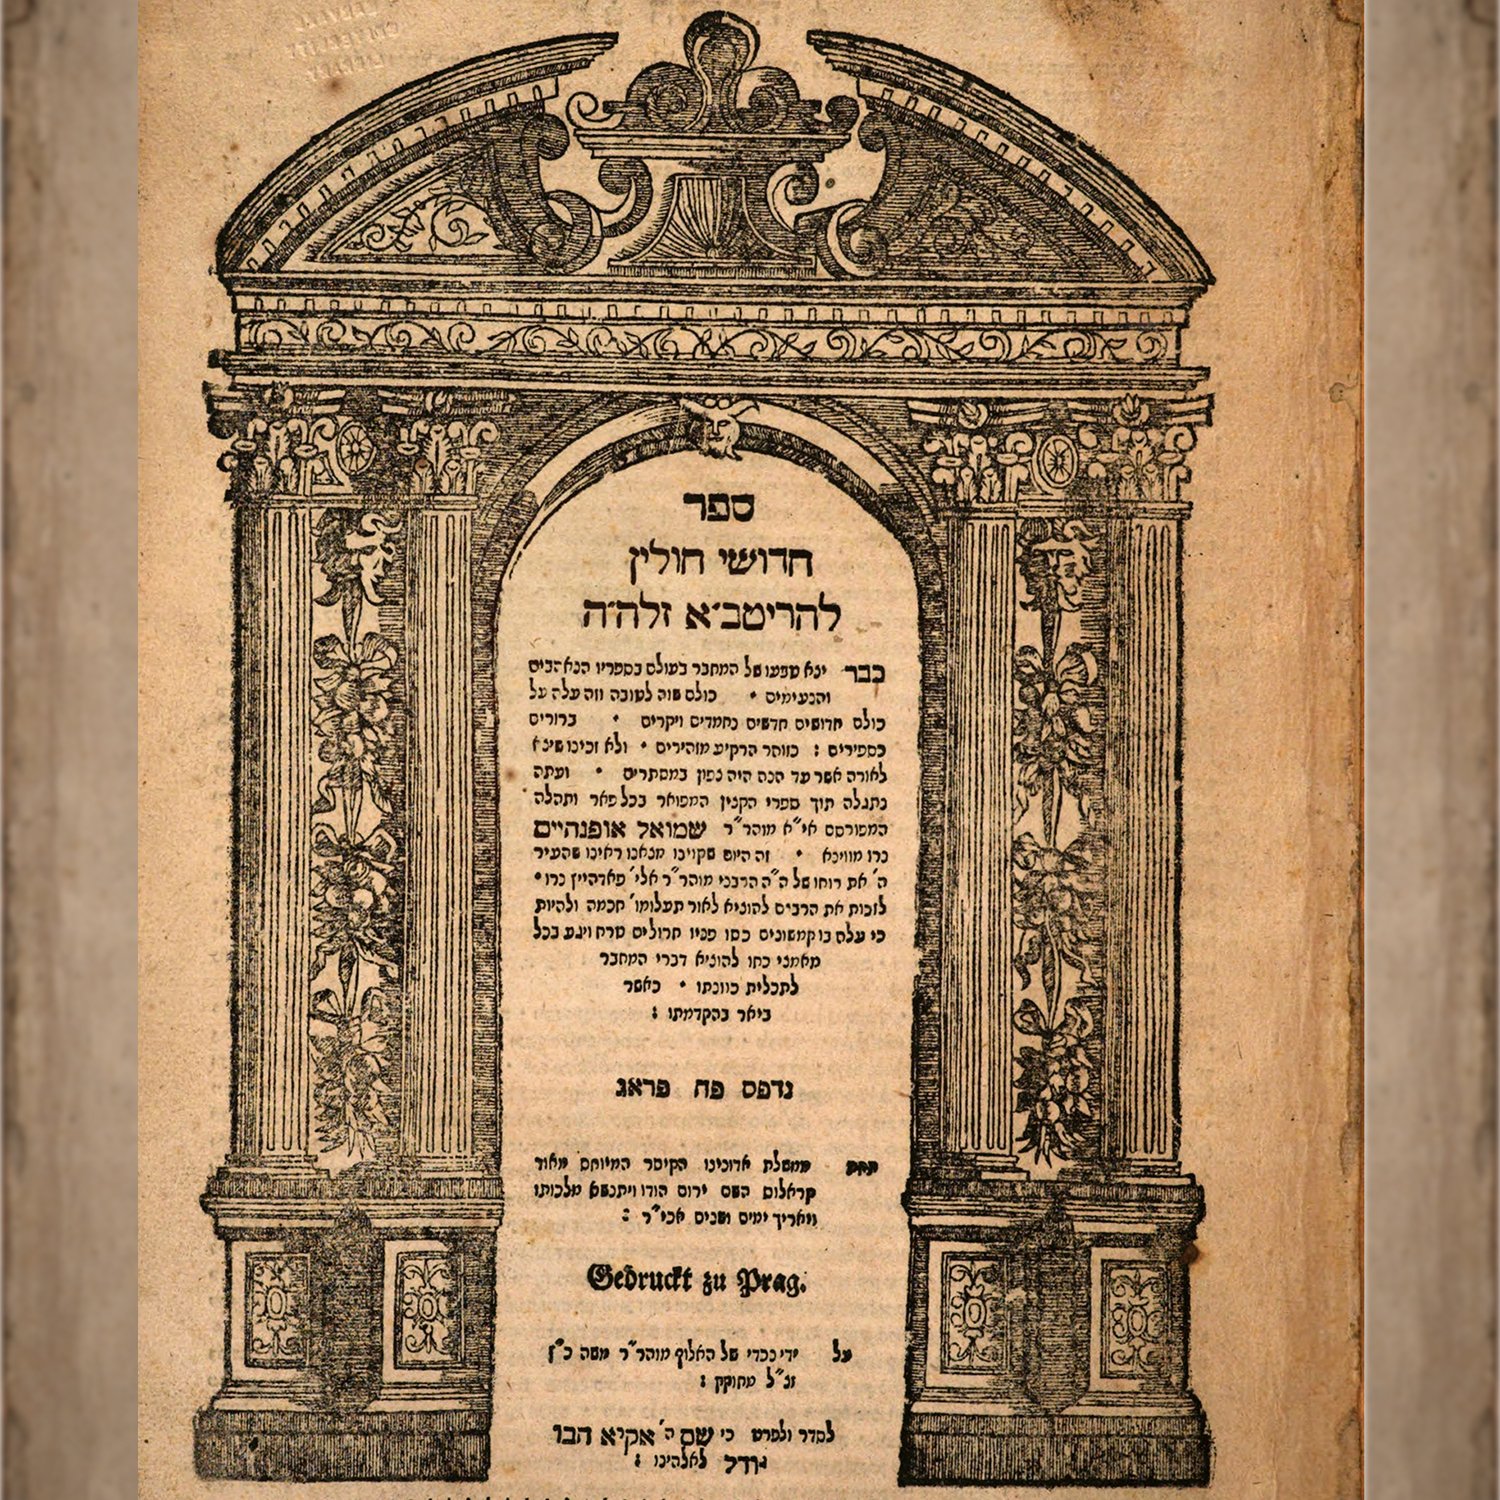 ספר
חדושי חולין
להריטב״א זלה״ה
כבר יצא טבעו של המחבר בעולם בספריו הנאהבים
והנעימים • כולם שוה לטובה וזה עלה על
כולם חדושים חדשים נחמדים ויקרים • ברורים
כספירים : כזוהר הרקיע מזהירים • ולא זכינו שיצא
לאורה אשר עד הנה היה צפון במסתרים • ועתה
נתגלה תוך ספרי הקצין המפואר בכל פאר ותהלה
המפורסם א״א מוהר״ר שמואל אופנהיים
נרו מווינא • זה היום שקוינו מצאנו ראינו שהעיר
ה׳ את רוחו של ה״ה הרבני מוהר״ר אלי׳ נרו •
לזכות את הרבים להוציא לאור תעלומו׳ חכמה ולהיות
כי עלה בו קמשונים כסו פניו חרולים טרח ויגע בכל
מאמצי כחו להוציא דברי המחבר
לתכלית כוונתו • כאשר
ביאר בהקדמתו :
נדפס פה פראג
תחת ממשלת אדונינו הקיסר המיוחס מאוד
קראלוס השם ירום הודו ויתנשא מלכותו
ויאריך ימים ושנים אכי״ר :
Gedruckt zu Prag.
על ידי נכדי של האלוף מוהר״ר משה כ״ץ
זצ״ל מחוקק :
לסדר ולפרט כי שם ה׳ אקרא הבו
גודל לאלהינו :